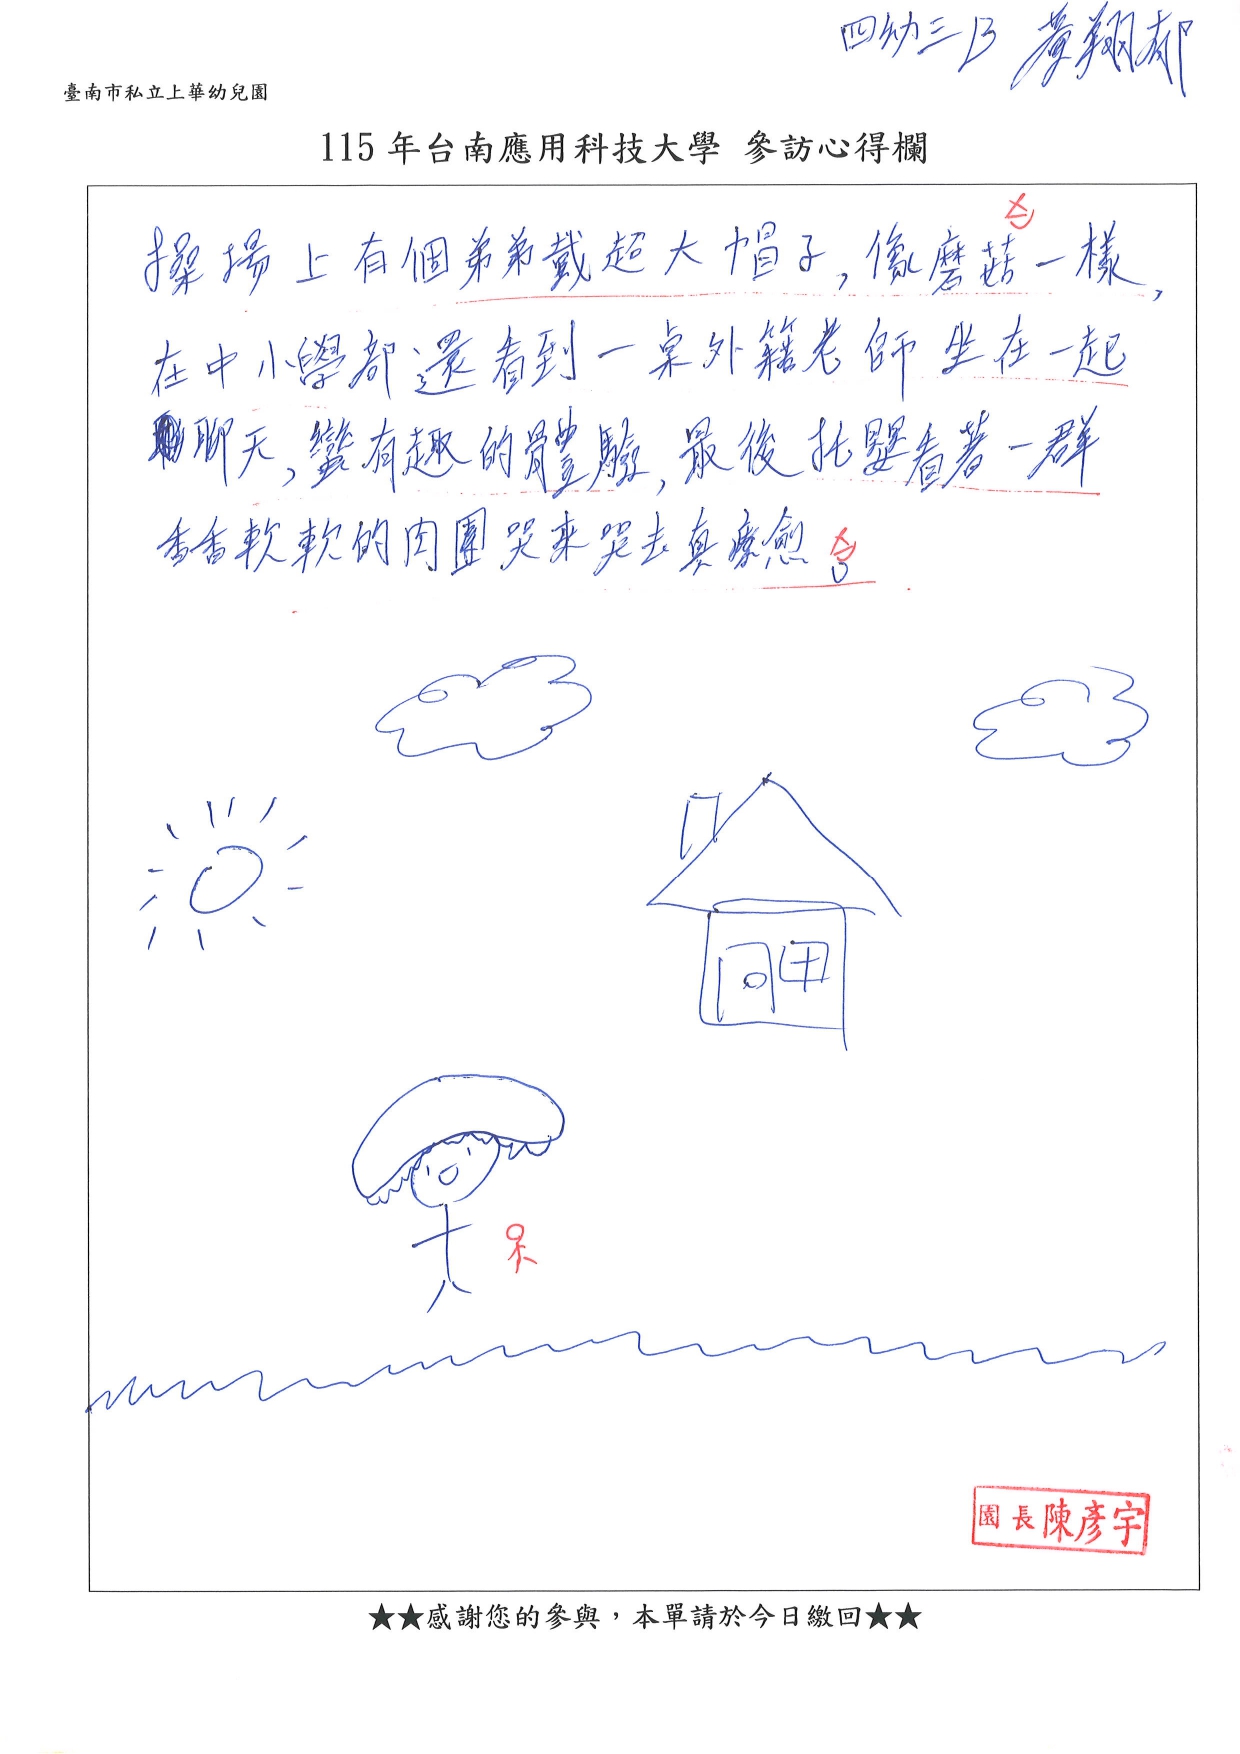 四幼三B 黃翔郁
臺南市私立上華幼兒園
115 年台南應用科技大學 參訪心得欄
操場上有個弟弟戴超大帽子,像磨菇一樣,
在中小學部還看到一桌外籍老師坐在一起
聊天,蠻有趣的體驗,最後托嬰看著一群
香香軟軟的肉團哭來哭去真療愈
園長陳彥宇
★★感謝您的參與,本單請於今日繳回★★